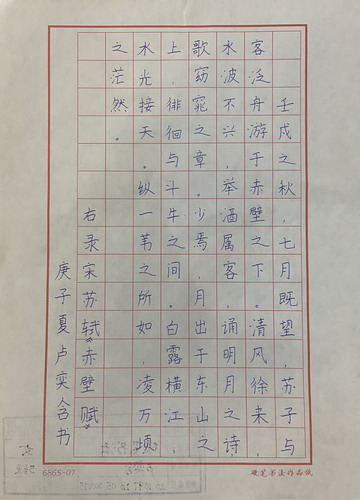 壬戌之秋，七月既望，苏子与
客泛舟游于赤壁之下。清风徐来，
水波不兴，举酒属客，诵明月之诗，
歌窈窕之章。少焉，月出于东山之
上，徘徊与斗牛之间。白露横江，
水光接天。纵一苇之所如，凌万顷
之茫然。
右录宋苏轼《赤壁赋》
庚子夏卢奕含书
6865-07
硬笔书法作品纸